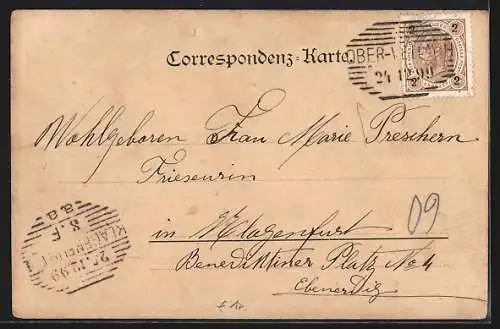 2 2
Correspondenz-Karte.
OBER-
24 12 99
2 2
Wohlgeboren Frau Marie Preschern
Friseurin
09
in Klagenfurt
Benediktiner Platz No 4
Ebenerdig
KLAGENFURT